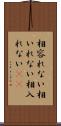 相容れない相
いれない相入
れない